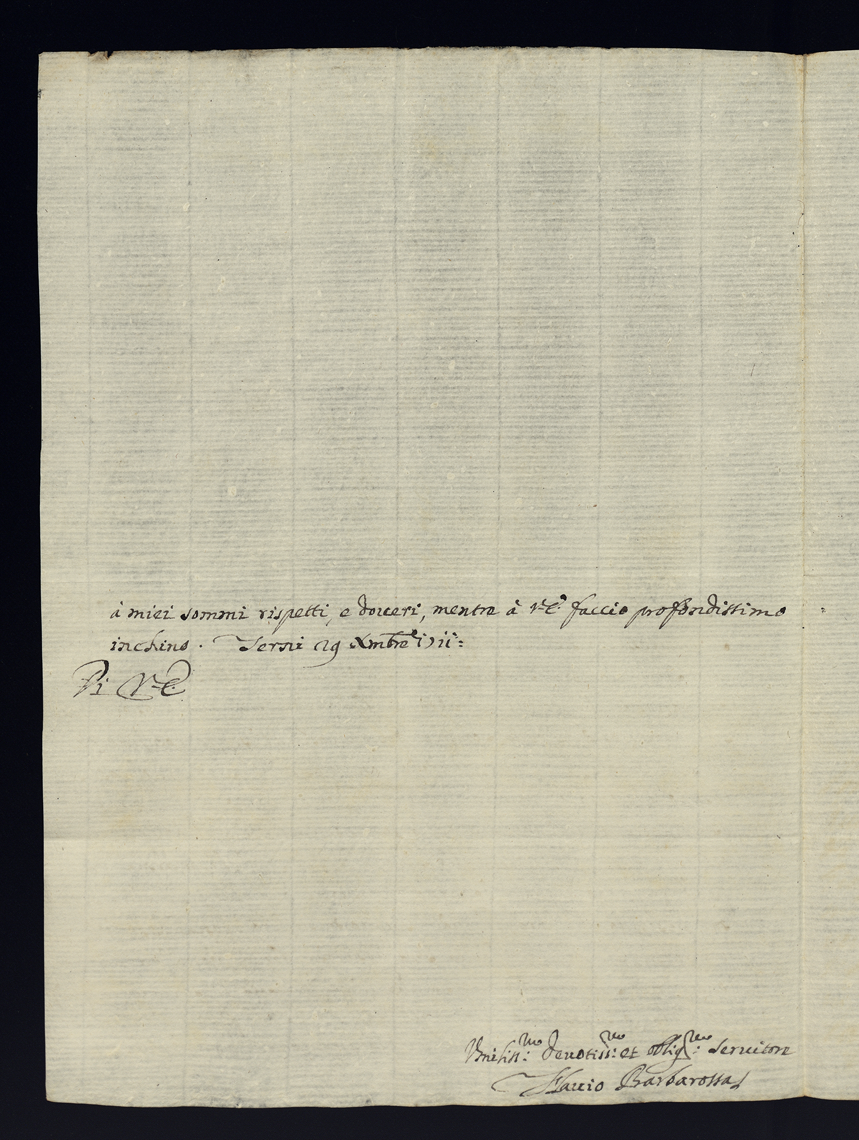 à miei sommi rispetti, e doueri, mentre à V.E. faccio profondissimo
inchino. Terni 29 Xmbre 1711:
Di V.E.
Vmiliss:mo Deuotiss:mo et oblig:mo Seruitore
Flauio Barbarossa